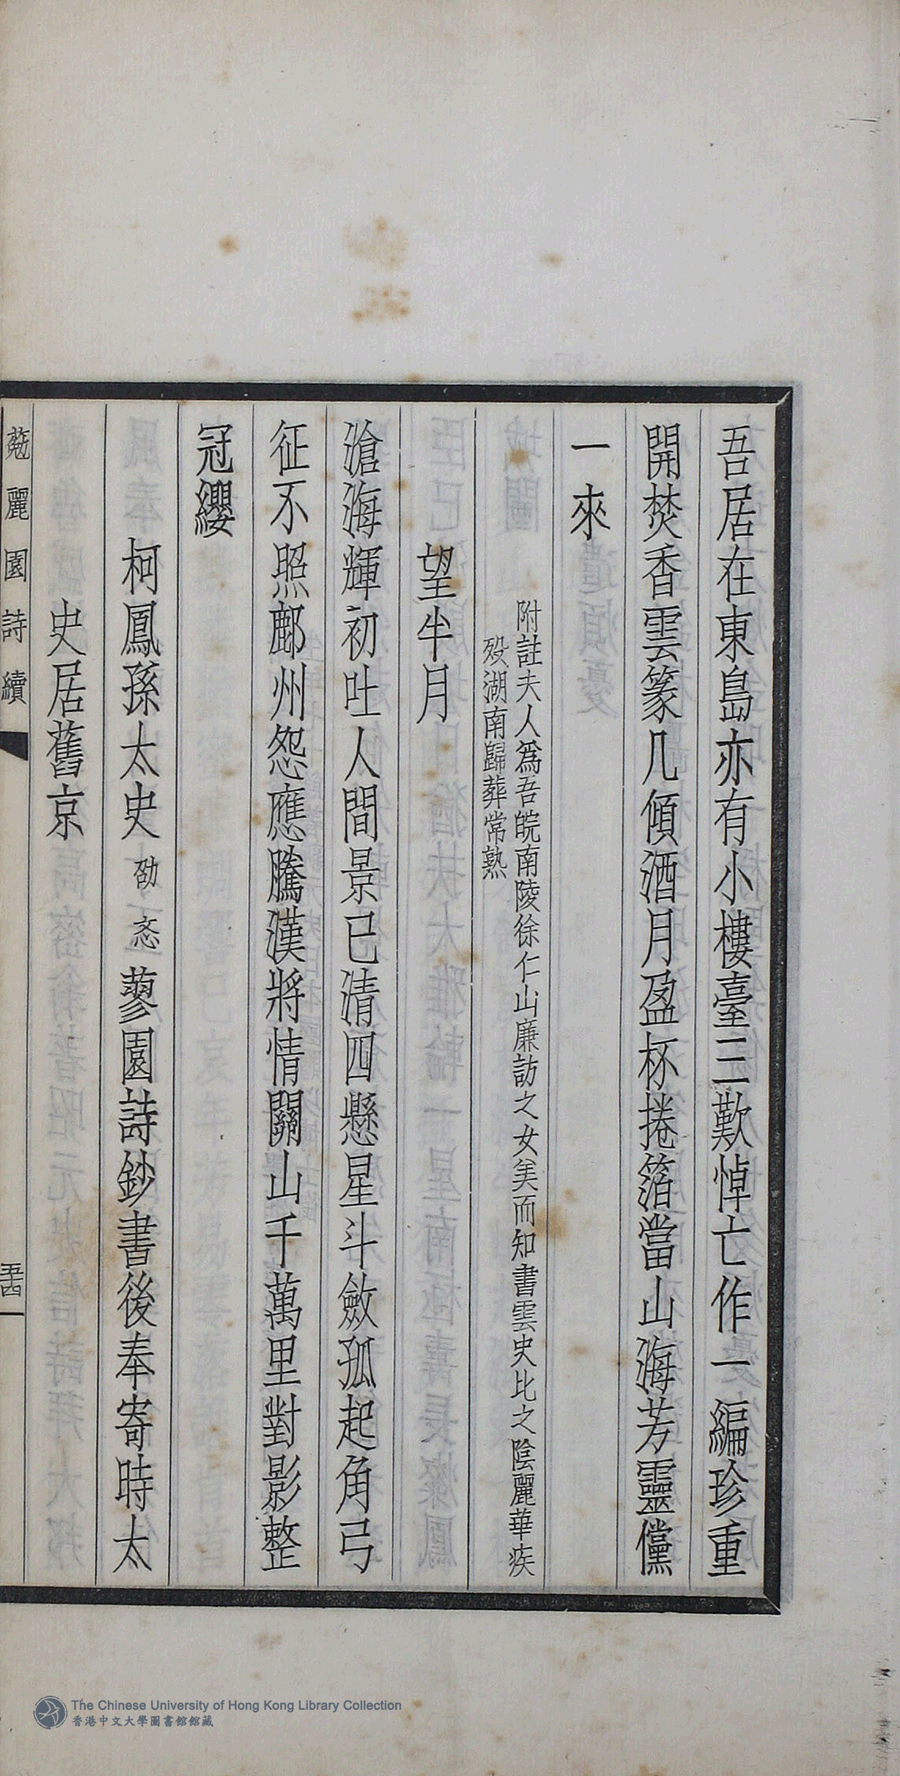 吾居在東島亦有小樓臺三歎悼亡作一編珍重
開焚香雲篆几傾酒月盈杯捲箔當山海芳靈儻
一來
附註夫人爲吾皖南陵徐仁山廉訪之女美而知書雲史比之陰麗華疾
殁湖南歸葬常熟
望半月
滄海輝初吐人間景已清四懸星斗斂孤起角弓
征不照鄜州怨應騰漢將情關山千萬里對影整
冠纓
柯鳳孫太史劭忞蓼園詩鈔書後奉寄時太
史居舊京
麗園詩續
五十四
The Chinese University of Hong Kong Library Collection
香港中文大學圖書館館藏